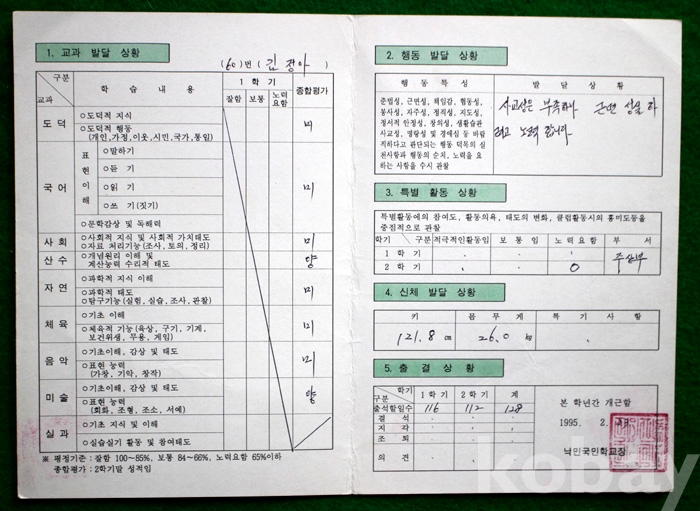 1. 교과 발달 상황
(60)번 (김정아)
구분
교과
학 습 내 용
1 학 기
잘함 보통 노력요함
종합평가
도 덕
○도덕적 지식
○도덕적 행동
(개인,가정,이웃,시민,국가,통일)
미
국 어
표현이해
○말하기
○듣 기
○읽 기
○쓰 기 (짓기)
○문학감상 및 독해력
미
사 회
○사회적 지식 및 사회적 가치태도
○자료 처리기능(조사, 토의, 정리)
미
산 수
○개념원리 이해 및
계산능력 수리적 태도
양
자 연
○과학적 지식 이해
○과학적 태도
○탐구기능(실험, 실습, 조사, 관찰)
미
체 육
○기초 이해
○체육적 기능(육상, 구기, 기계,
보건위생, 무용, 게임)
미
음 악
○기초이해, 감상 및 태도
○표현 능력
(가창, 기악, 창작)
미
미 술
○기초이해, 감상 및 태도
○표현 능력
(회화, 조형, 조소, 서예)
양
실 과
○기초 지식 및 이해
○실습실기 활동 및 참여태도
※ 평정기준: 잘함 100~85%, 보통 84~66%, 노력요함 65%이하
종합평가: 2학기말 성적임
2. 행동 발달 상황
행 동 특 성
발 달 상 황
준법성, 근면성, 책임감, 협동성,
봉사성, 자주성, 정직성, 지도성,
정서적 안정성, 창의성, 생활습관
사교성, 명랑성 및 경애심 등 바람
직하다고 판단되는 행동 덕목의 실
천사항과 행동의 순치, 노력을 요
하는 사항을 수시 관찰
사교성은 부족하나 근면 성실 하
려고 노력 합니다
3. 특별 활동 상황
특별활동에의 참여도, 활동의욕, 태도의 변화, 클럽활동시의 흥미도등을
중점적으로 관찰
학기 구분 적극적인활동임 보 통 임 노 력 요 함 부 서
1 학 기
2 학 기 O
주산부
4. 신체 발달 상황
키 몸 무 게 특 기 사 항
121.8 cm 26.0 kg
5. 출 결 상 황
구분 학기 1 학 기 2 학 기 계
출석할일수 116 112 128
결 석
지 각
조 퇴
의 견
본 학년간 개근함
1995. 2.
낙민국민학교장
kobay